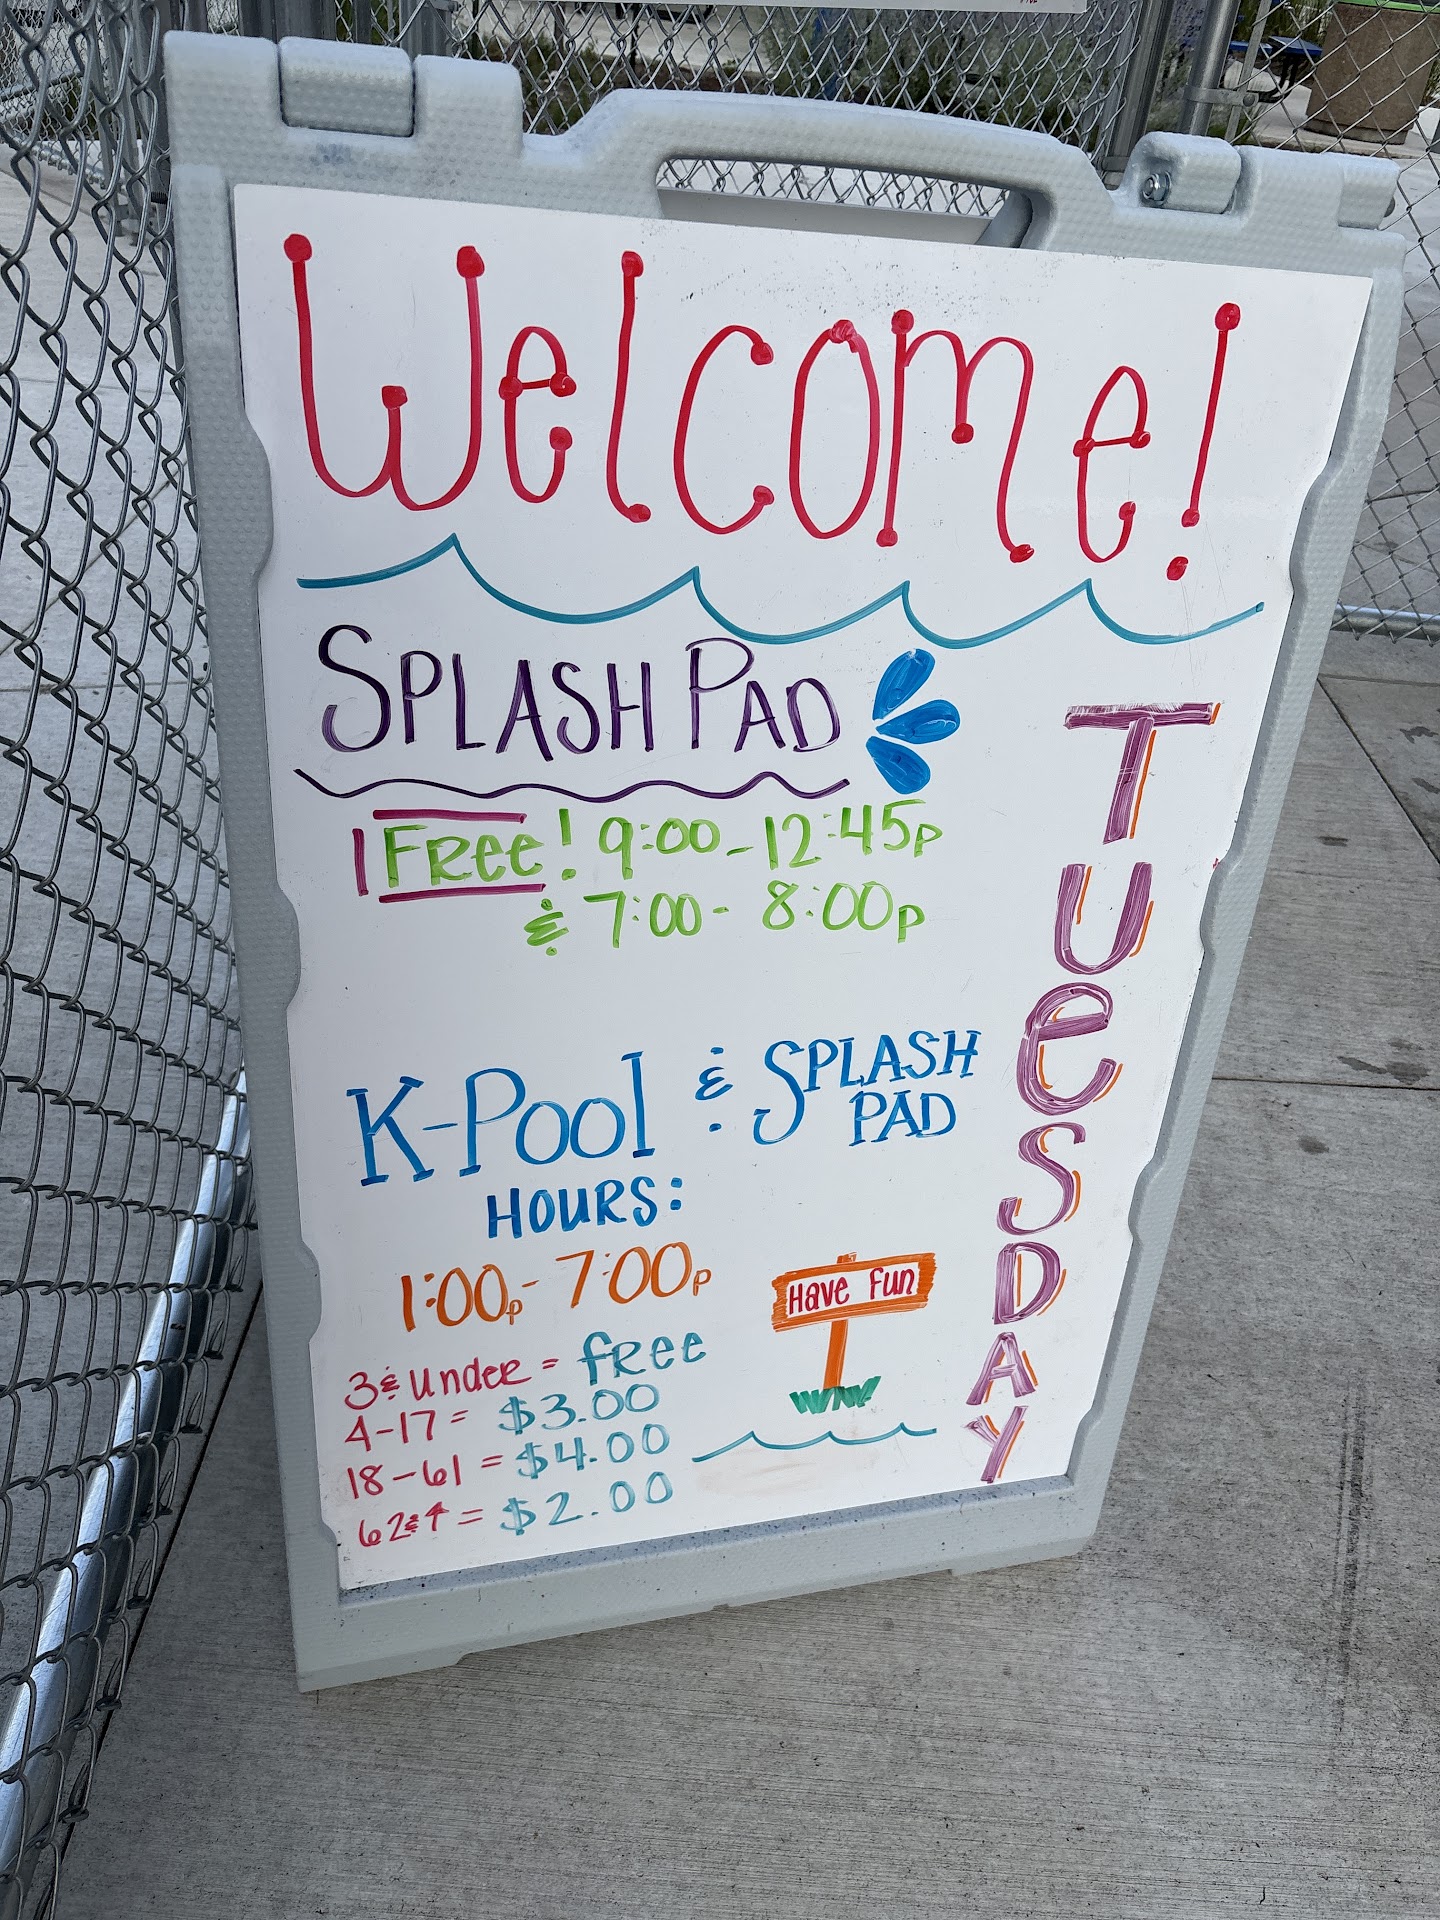 Welcome!
SPLASH PAD
FRee! 9:00-12:45p
& 7:00-8:00p
K-Pool & SPLASH PAD
HOURS:
1:00p-7:00p
Have Fun
3& Under = fRee
4-17 = $3.00
18-61 = $4.00
62&↑ = $2.00
TUeSDAY